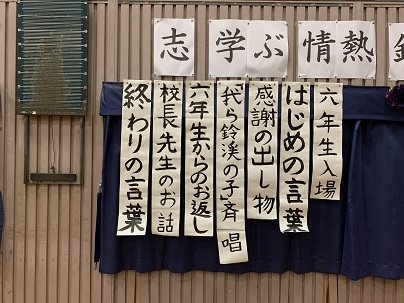 志学ぶ情熱
六年生入場
はじめの言葉
感謝の出し物
「我ら鈴渓の子」斉唱
六年生からのお返し
校長先生のお話
終わりの言葉